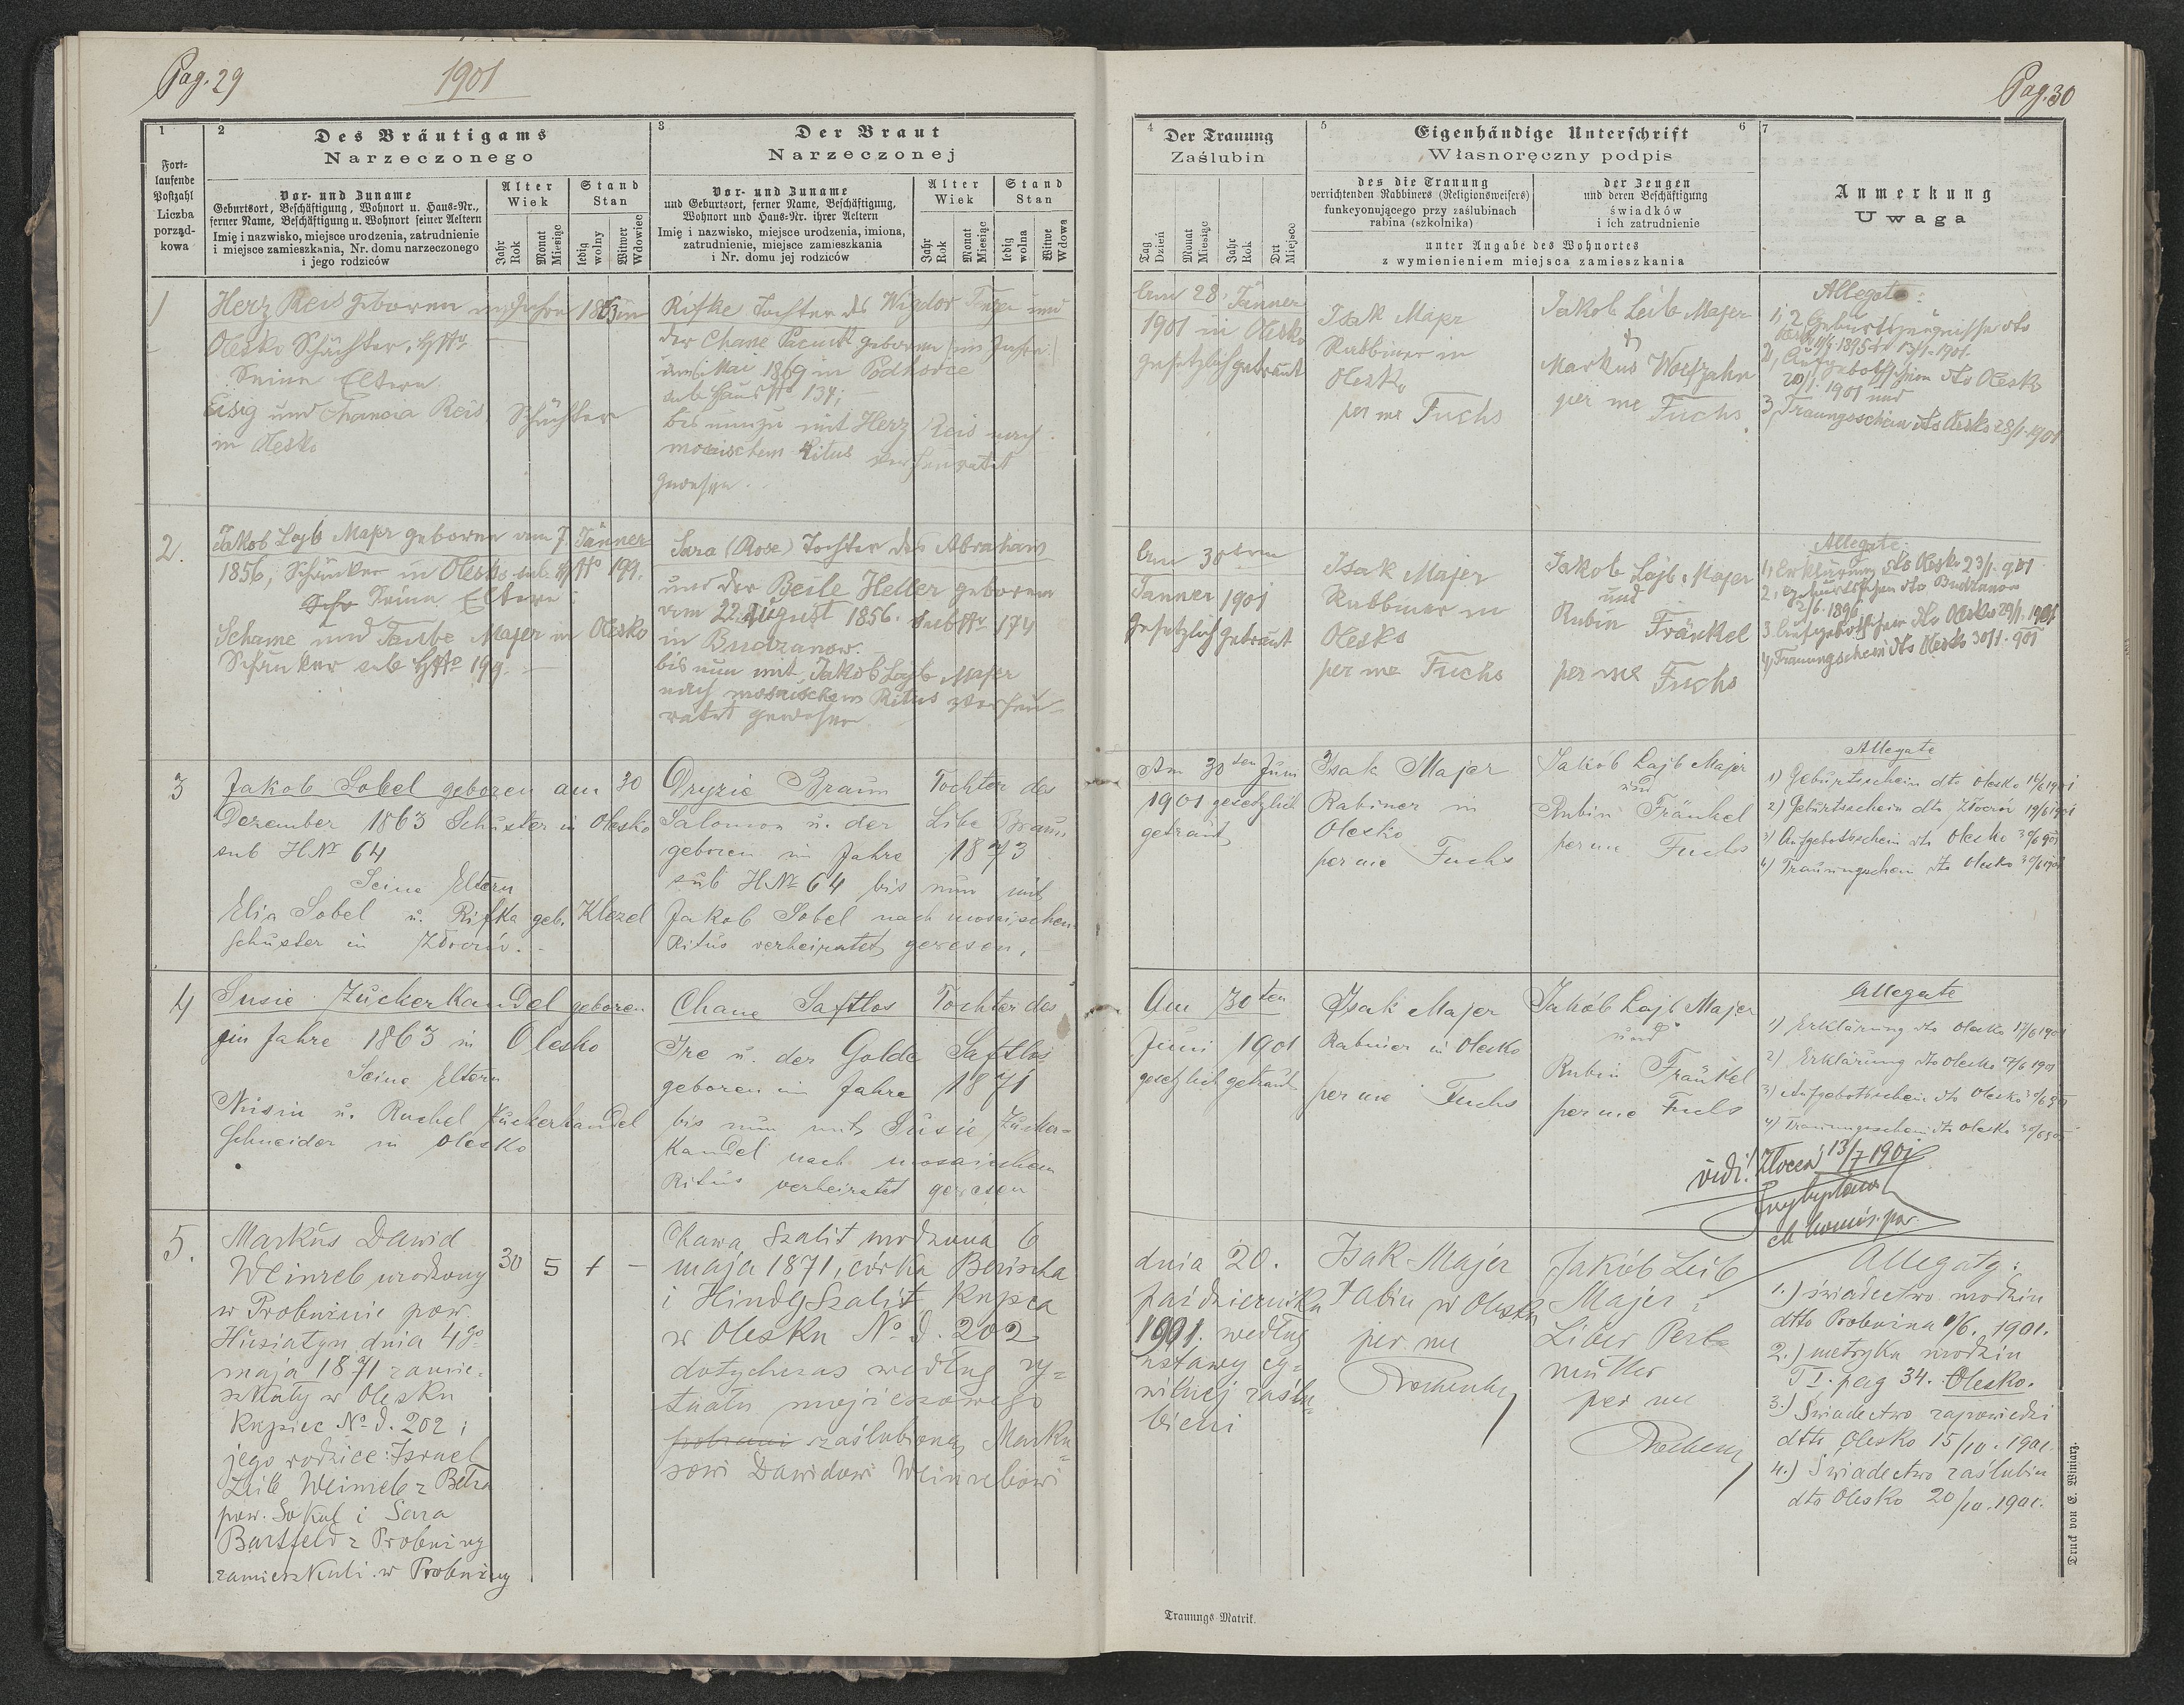 Pag. 29
1901
1
2
Des Bräutigams
Narzeczonego
3
Der Braut
Narzeczonej
Fort-
laufende
Postzahl
Liczba
porząd-
kowa
Vor- und Zuname
Geburtsort, Beschäftigung, Wohnort u. Haus-Nr.,
ferner Name, Beschäftigung u. Wohnort seiner Aeltern
Imię i nazwisko, miejsce urodzenia, zatrudnienie
i miejsce zamieszkania, Nr. domu narzeczonego
i jego rodziców
Alter
Wiek
Stand
Stan
Jahr
Rok
Monat
Miesiąc
ledig
wolny
Witwer
Wdowiec
Vor- und Zuname
und Geburtsort, ferner Name, Beschäftigung,
Wohnort und Haus-Nr. ihrer Aeltern
Imię i nazwisko, miejsce urodzenia, imiona,
zatrudnienie, miejsce zamieszkania
i Nr. domu jej rodziców
Alter
Wiek
Stand
Stan
Jahr
Rok
Monat
Miesiąc
ledig
wolna
Witwe
Wdowa
1
Herz Reis geboren im Jahre 1863 in
Olesko Schächter,
Seine Eltern
Eisig und Chancia Reis Schächter
in Olesko
Rifke Tochter des Wigdor und
der Chane geboren im Jahre
Mai 1869 in Podhorce
sub Haus No 134;
bis nunzu mit Herz Reis nach
mosaischem Ritus verheiratet
gewesen.
2.
Jakob Lajb Majer geboren vom 7 Jänner
1856, Schänker in Olesko sub No 199.
Seine Eltern:
Schame und Taube Majer in Olesko
Schänker sub No 199.
Sara (Rose) Tochter des Abraham
und der Beile Heller geboren
vom 22. August 1856. sub No 174
in Budzanow.
bis nun mit Jakob Lajb Majer
nach mosaischem Ritus verheu-
ratet gewesen
3
Jakob Sobel geboren am 30
Dezember 1863 Schuster in Olesko
sub H.No 64
Seine Eltern
Elia Sobel u. Rifka geb. Klezel
Schuster in Złoczów.
Dryzie Braun Tochter des
Salomon u. der Libe Braun
geboren im Jahre 1873
sub H.No 64 bis nun mit
Jakob Sobel nach mosaischen
Ritus verheiratet gewesen.
4
Susie Zuckerkandel geboren
im Jahre 1863 in Olesko
Seine Eltern
Nusin u. Rachel Zuckerkandel
Schneider in Olesko
Chane Saftlos Tochter des
Ire u. der Golde Saftlos
geboren im Jahre 1871
bis nun mit Susie Zucker=
kandel nach mosaischem
Ritus verheiratet gewesen
5.
Markus Dawid
Weinreb urodzony
w Probużnie pow.
Husiatyn dnia 4go
maja 1871 zamie=
szkały w Olesku
kupiec No d. 202;
jego rodzice: Izrael
Leib Weinreb z Bełza
pow. Sokal i Sara
Bartfeld z Probużny
zamieszkali w Probużny
30 5 1 -
Chawa Szalit urodzona 6
maja 1871, córka Berischa
i Hindy Szalit kupca
w Olesku No d. 202
dotychczas według ry=
tuału mojżeszowego
zaślubioną Marku=
sowi Dawidowi Weinrebowi
Pag. 30
4
Der Trauung
Zaślubin
5
Eigenhändige Unterschrift
Własnoręczny podpis
6
7
Anmerkung
Uwaga
Tag
Dzień
Monat
Miesiąc
Jahr
Rok
Ort
Miejsce
des die Trauung
verrichtenden Rabbiners (Religionsweisers)
funkcyonującego przy zaślubinach
rabina (szkolnika)
der Zeugen
und deren Beschäftigung
świadków
i ich zatrudnienie
unter Angabe des Wohnortes
z wymienieniem miejsca zamieszkania
Am 28. Jänner
1901 in Olesko
gesetzlich getraut
Isak Majer
Rabbiner in
Olesko
per me Fuchs
Jakob Leib Majer
Markus
per me Fuchs
Allegate:
1, 2 Geburtszeugnisse dto
2, Aufgebotsschein dto Olesko
1901 und
3, Trauungsschein dto Olesko 28/1. 1901
Am 30ten
Jänner 1901
gesetzlich getraut
Isak Majer
Rabbiner in
Olesko
per me Fuchs
Jakob Lajb Majer
und
Rubin Fränkel
per me Fuchs
Allegate:
1, Erklärung dto Olesko 23/1. 901
2, Geburtsschein dto Budzanow
2/6. 1896
3. Aufgebotsschein dto Olesko 29/1. 1901
4, Trauungsschein dto Olesko 30/1. 901
Am 30ten Juni
1901 gesetzlich
getraut
Isak Majer
Rabiner in
Olesko
per me Fuchs
Jakób Lajb Majer
und
Rubin Fränkel
per me Fuchs
Allegate
1) Geburtsschein dto Olesko 16/6 1901
2) Geburtsschein dto Złoczów 19/6 1901
3) Aufgebotsschein dto Olesko 30/6 901
4) Trauungschein dto Olesko 30/6 1901
Am 30ten
Juni 1901
gesetzlich getraut
Isak Majer
Rabiner in Olesko
per me Fuchs
Jakób Lajb Majer
und
Rubin Fränkel
per me Fuchs
Allegate
1) Erklärung dto Olesko 17/6 1901
2) Erklärung dto Olesko 17/6 1901
3) Aufgebotsschein dto Olesko 30/6 901
4) Trauungsschein dto Olesko 30/6 901
vidi! Złoczów 13/7 1901
dnia 20.
października
1901. według
ustawy cy=
wilnej zaślu=
bieni
Isak Majer
rabin w Olesku
per me
Jakób Leib
Majer i
Liber Perl=
mutter
per me
Allegaty:
1.) świadectwo urodzin
dtto Probużna 1/6. 1901.
2.) metryka urodzin
T I. pag 34. Olesko.
3.) Świadectwo zapowiedzi
dtto Olesko 15/10. 1901.
4.) Świadectwo zaślubin
dto Olesko 20/10. 1901.
Trauungs-Matrik.
Druck von E. Winiarz.